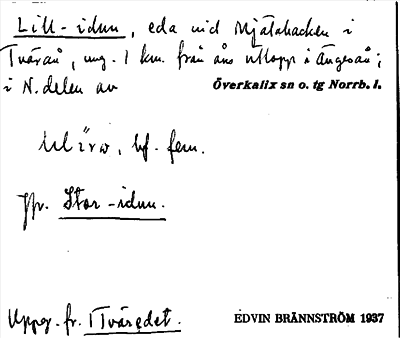 Lill-idun, eda vid Mjätabacken i
Tvärån, ung. 1 km. från åns utlopp i Ängesån;
i N. delen av Överkalix sn o. tg Norrb. l.
bf. fem.
Jfr. Stor-idun.
Uppg. fr. Tväredet. EDVIN BRÄNNSTRÖM 1937